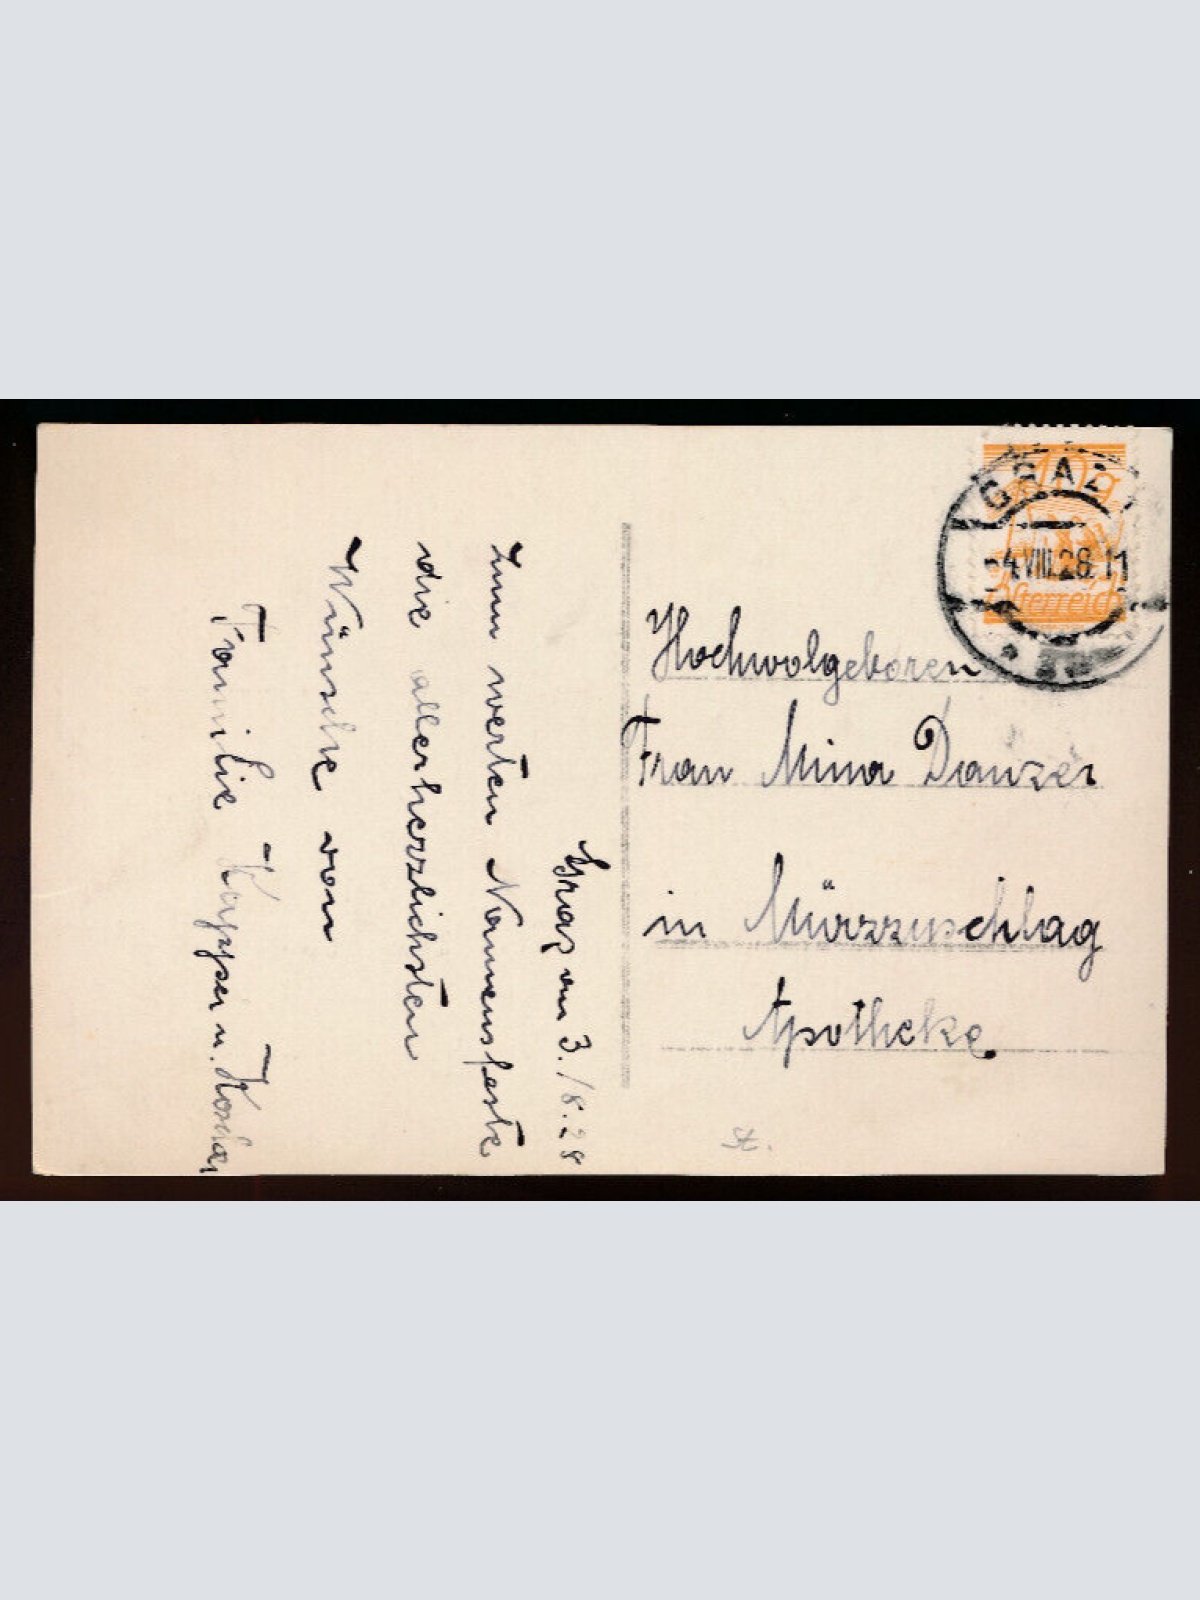 Graz am 3./8.28
zum werten Namensfeste
die allerherzlichsten
Wünsche von
Familie u.
10 g
Österreich
GRAZ
-4.VIII.28.11
Hochwolgeboren
Frau Mina Danzer
in Mürzzuschlag
Apotheke
St.